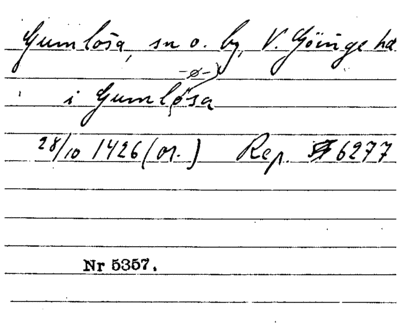 Gumlösa, sn o. by, V. Göinge hd
-ø-)
i Gumlosa
28/10 1426 (or.) Rep. 6277
Nr 5357.